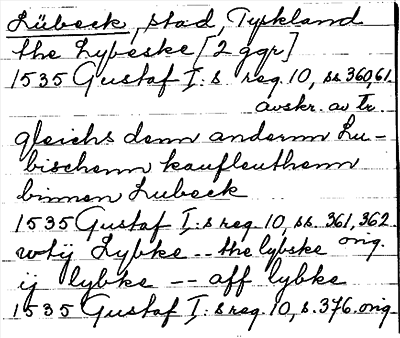 Lübeck, stad, Tyskland
the Lybeske [2 ggr]
1535 Gustaf I:s reg. 10, ss. 360, 61.
avskr. av tr.
gleichs denn andernn Lu-
bischenn kaufleuthenn
binnen Lubeck
1535 Gustaf I:s reg. 10, ss. 361, 362
orig.
wtij Lybke -- the lybske
ij lybke -- aff lybke
1535 Gustaf I:s reg. 10, s. 376. orig.